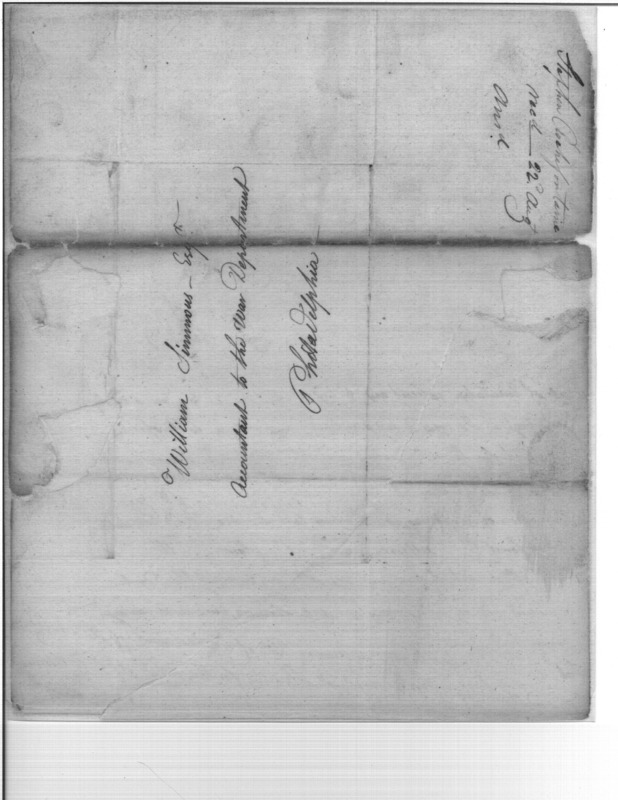 William Simmons - Esqr
Accountant to the War Department
Philadelphia
Stephen Rochefontaine
recd - 22d Aug